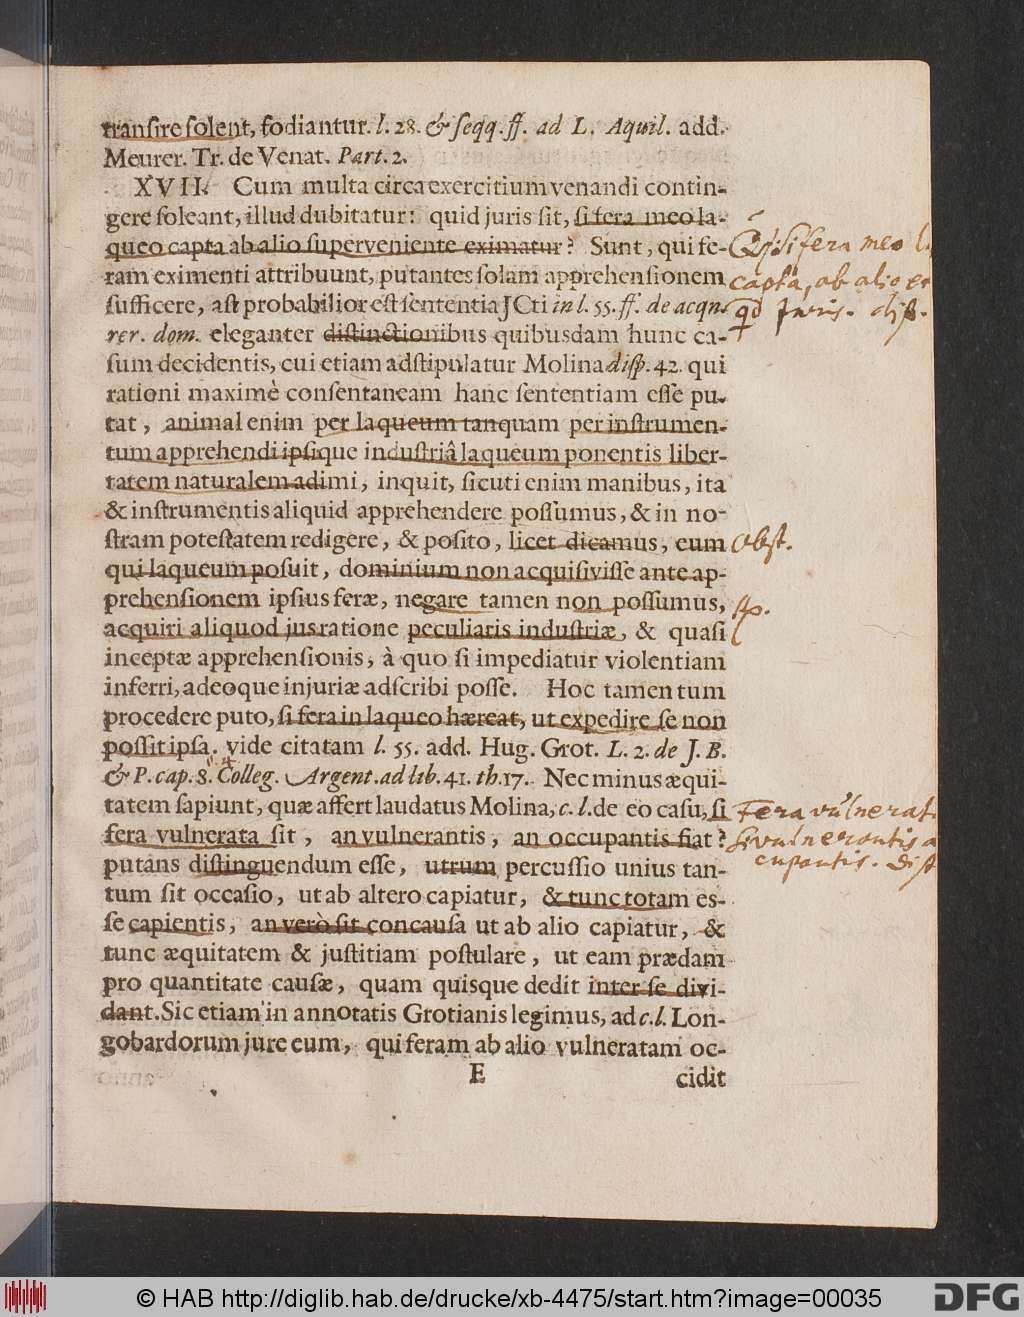 tranſire ſolent, fodiantur. l. 28. & ſeqq. ff. ad L. Aquil. add.
Meurer. Tr. de Venat. Part. 2.
XVII. Cum multa circa exercitium venandi contin-
gere ſoleant, illud dubitatur: quid juris ſit, ſi fera meo la-
queo capta ab alio ſuperveniente eximatur? Sunt, qui fe-
ram eximenti attribuunt, putantes ſolam apprehenſionem
ſufficere, aſt probabilior eſt ſententia JCti in l. 55. ff. de acqui-
rer. dom. eleganter diſtinctionibus quibusdam hunc ca-
ſum decidentis, cui etiam adſtipulatur Molina diſp. 42. qui
rationi maximè conſentaneam hanc ſententiam eſſe pu-
tat, animal enim per laqueum tanquam per inſtrumen-
tum apprehendi ipſique induſtriâ laqueum ponentis liber-
tatem naturalem adimi, inquit, ſicuti enim manibus, ita
& inſtrumentis aliquid apprehendere poſſumus, & in no-
ſtram poteſtatem redigere, & poſito, licet dicamus, eum
qui laqueum poſuit, dominium non acquiſiviſſe ante ap-
prehenſionem ipſius feræ, negare tamen non poſſumus,
acquiri aliquod jus ratione peculiaris induſtriæ, & quaſi
inceptæ apprehenſionis, à quo ſi impediatur violentiam
inferri, adeoque injuriæ adſcribi poſſe. Hoc tamen tum
procedere puto, ſi fera in laqueo hæreat, ut expedire ſe non
poſſit ipſa. vide citatam l. 55. add. Hug. Grot. L. 2. de J. B.
& P. cap. 8. Colleg. Argent. ad lib. 41. th. 17. Nec minus æqui-
tatem ſapiunt, quæ affert laudatus Molina, c. l. de eo caſu, ſi
fera vulnerata ſit, an vulnerantis, an occupantis fiat?
putans diſtinguendum eſſe, utrum percuſſio unius tan-
tum ſit occaſio, ut ab altero capiatur, & tunc totam es-
ſe capientis, an verò ſit concauſa ut ab alio capiatur, &
tunc æquitatem & juſtitiam poſtulare, ut eam prædam
pro quantitate cauſæ, quam quisque dedit inter ſe divi-
dant. Sic etiam in annotatis Grotianis legimus, ad c. l. Lon-
gobardorum jure eum, qui feram ab alio vulneratam oc-
E cidit
ſi fera meo
capta, ab alio
Juris. diſt.
Obſt.
Fera vulnerat
vulnerantis
cupantis. Diſt
© HAB http://diglib.hab.de/drucke/xb-4475/start.htm?image=00035
DFG